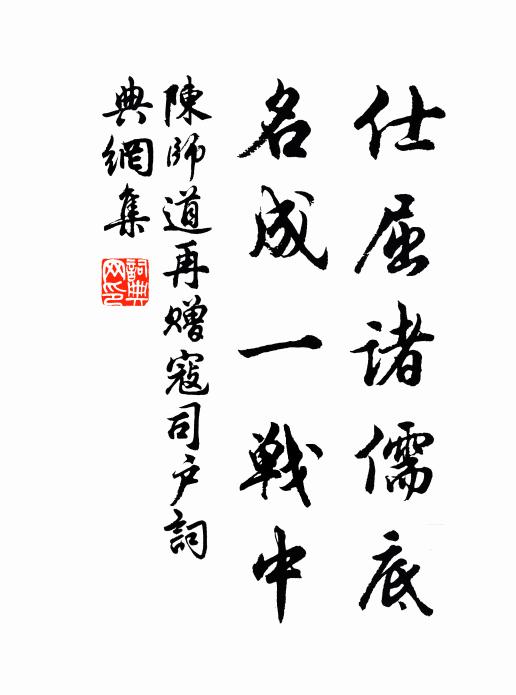 仕屈諸儒底
名成一戰中
陳師道再赠寇司户詞
典網集
詞典
网印